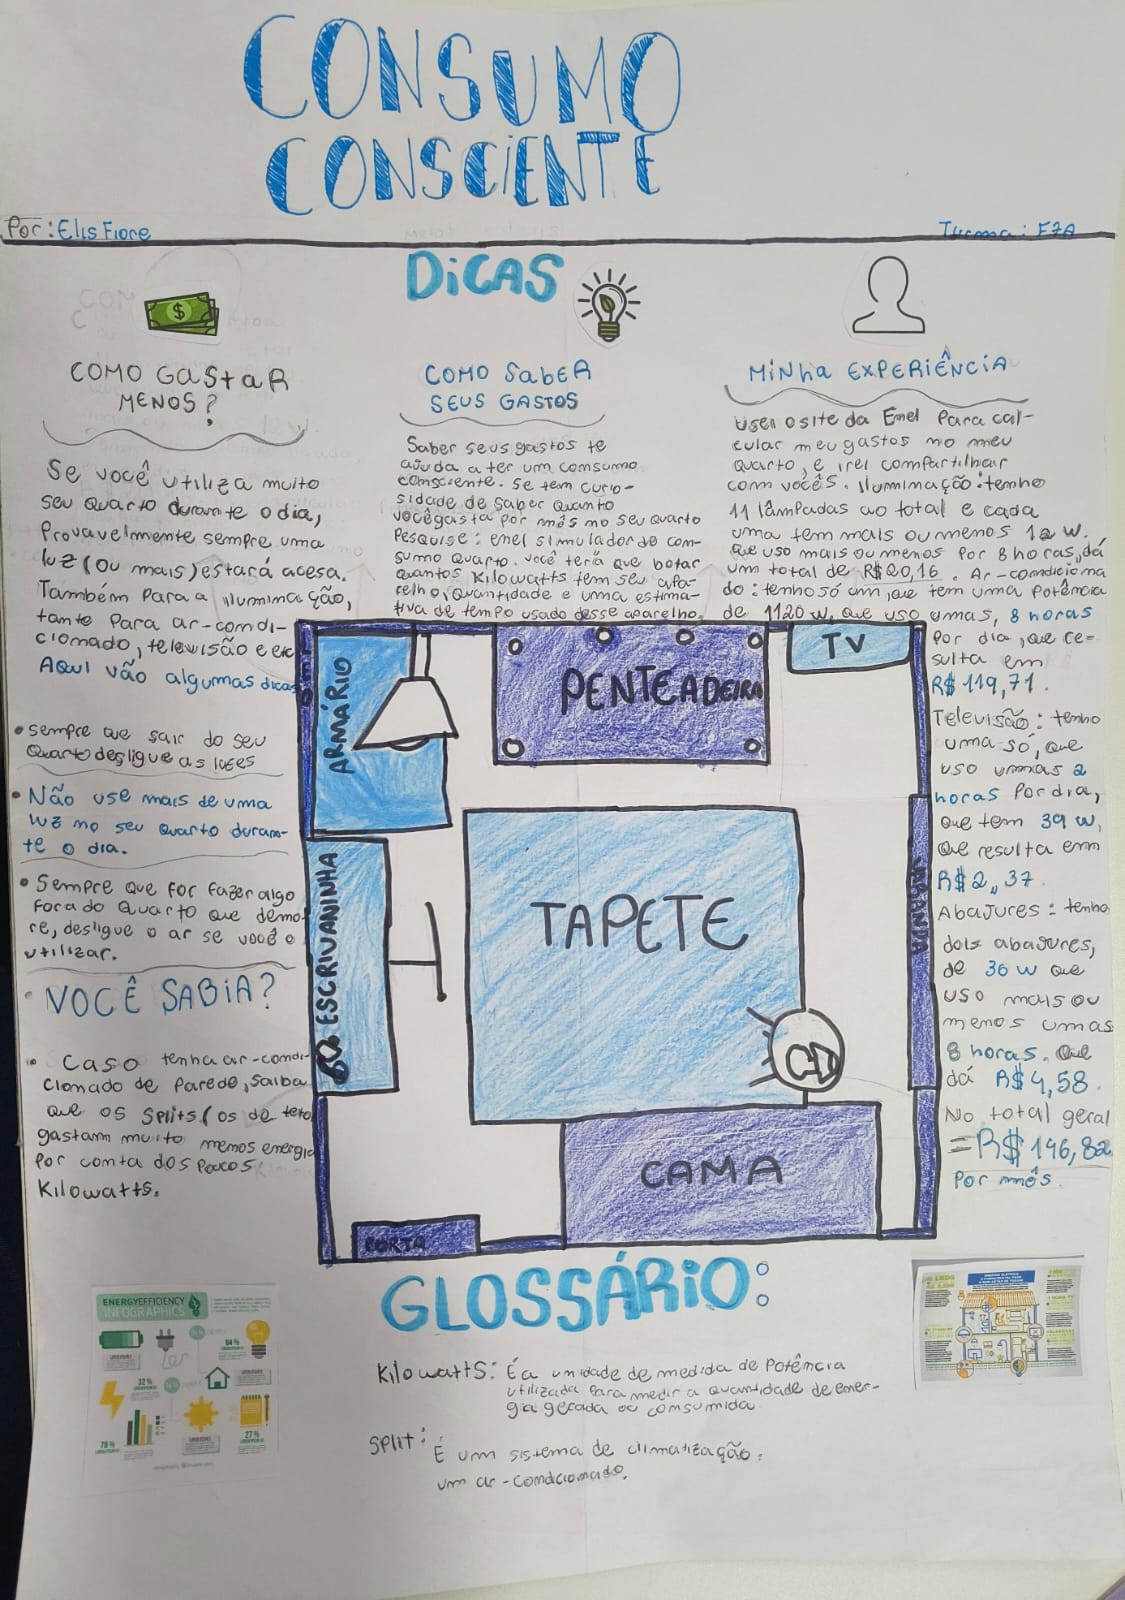 CONSUMO
CONSCIENTE
Por: Elis Fiore
Turma: F7A
DICAS
COMO GASTAR
MENOS?
Se você utiliza muito
seu quarto durante o dia,
Provavelmente sempre uma
luz (ou mais) estará acesa.
Também para a iluminação,
tante para ar-condi-
cionado, televisão e
Aqui vão algumas dicas
• Sempre que sair do seu
quarto desligue as luzes
• Não use mais de uma
luz no seu quarto duran-
te o dia.
• Sempre que for fazer algo
fora do quarto que demo-
re, desligue o ar se você o
utilizar.
• VOCÊ SABIA?
• Caso tenha ar-condi-
cionado de parede, saiba
que os splits (os de teto
gastam muito menos energia
por conta dos poucos
Kilowatts.
COMO SABER
SEUS GASTOS
Saber seus gastos te
ajuda a ter um consumo
consciente. Se tem curio-
sidade de saber quanto
você gasta por mês no seu quarto
Pesquise: enel simulador de con-
sumo quarto. Você terá que botar
quantos Kilowatts tem seu apa-
relho, quantidade e uma estima-
tiva de tempo usado desse aparelho.
MINHA EXPERIÊNCIA
Usei o site da Enel para cal-
cular meu gastos no meu
quarto, e irei compartilhar
com vocês. Iluminação: tenho
11 lâmpadas ao total e cada
uma tem mais ou menos 12 W.
que uso mais ou menos por 8 horas, dá
um total de R$20,16. Ar-condiciona
do: tenho só um, que tem uma potência
de 1120 w, que uso umas, 8 horas
por dia, que re-
sulta em
R$119,71.
Televisão: tenho
uma só, que
uso umas 2
horas por dia,
que tem 39 w,
que resulta em
R$2,37
Abajures: tenho
dois abajures,
de 36 w que
uso mais ou
menos umas
8 horas. Que
dá R$4,58.
No total geral
=R$146,82
Por mês.
ARMÁRIO
PENTEADEIRA
TV
ESCRIVANINHA
TAPETE
CAMA
PORTA
GLOSSÁRIO:
Kilowatts: É a unidade de medida de Potência
utilizada para medir a quantidade de ener-
gia gerada ou consumida
Split: É um sistema de climatização.
um ar-condicionado.
ENERGYEFFICIENCY
INFOGRAPHICS
84 %
32 %
78 %
27 %